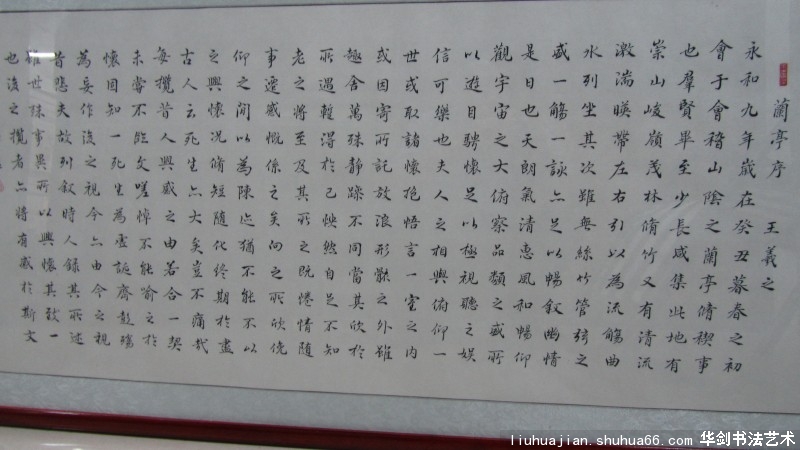 蘭亭序 王羲之
永和九年歲在癸丑暮春之初
會于會稽山陰之蘭亭脩稧事
也羣賢畢至少長咸集此地有
崇山峻嶺茂林脩竹又有清流
激湍暎帶左右引以為流觴曲
水列坐其次雖無絲竹管弦之
盛一觴一詠亦足以暢敘幽情
是日也天朗氣清惠風和暢仰
觀宇宙之大俯察品類之盛所
以遊目騁懷足以極視聽之娛
信可樂也夫人之相與俯仰一
世或取諸懷抱悟言一室之內
或因寄所託放浪形骸之外雖
趣舍萬殊靜躁不同當其欣於
所遇蹔得於己怏然自足不知
老之將至及其所之既惓情隨
事遷感慨係之矣向之所欣俛
仰之間以為陳迹猶不能不以
之興懷況脩短隨化終期於盡
古人云死生亦大矣豈不痛哉
每攬昔人興感之由若合一契
未嘗不臨文嗟悼不能喻之於
懷固知一死生為虛誕齊彭殤
為妄作後之視今亦由今之視
昔悲夫故列敘時人錄其所述
雖世殊事異所以興懷其致一
也後之攬者亦將有感於斯文
liuhuajian.shuhua66.com 华剑书法艺术